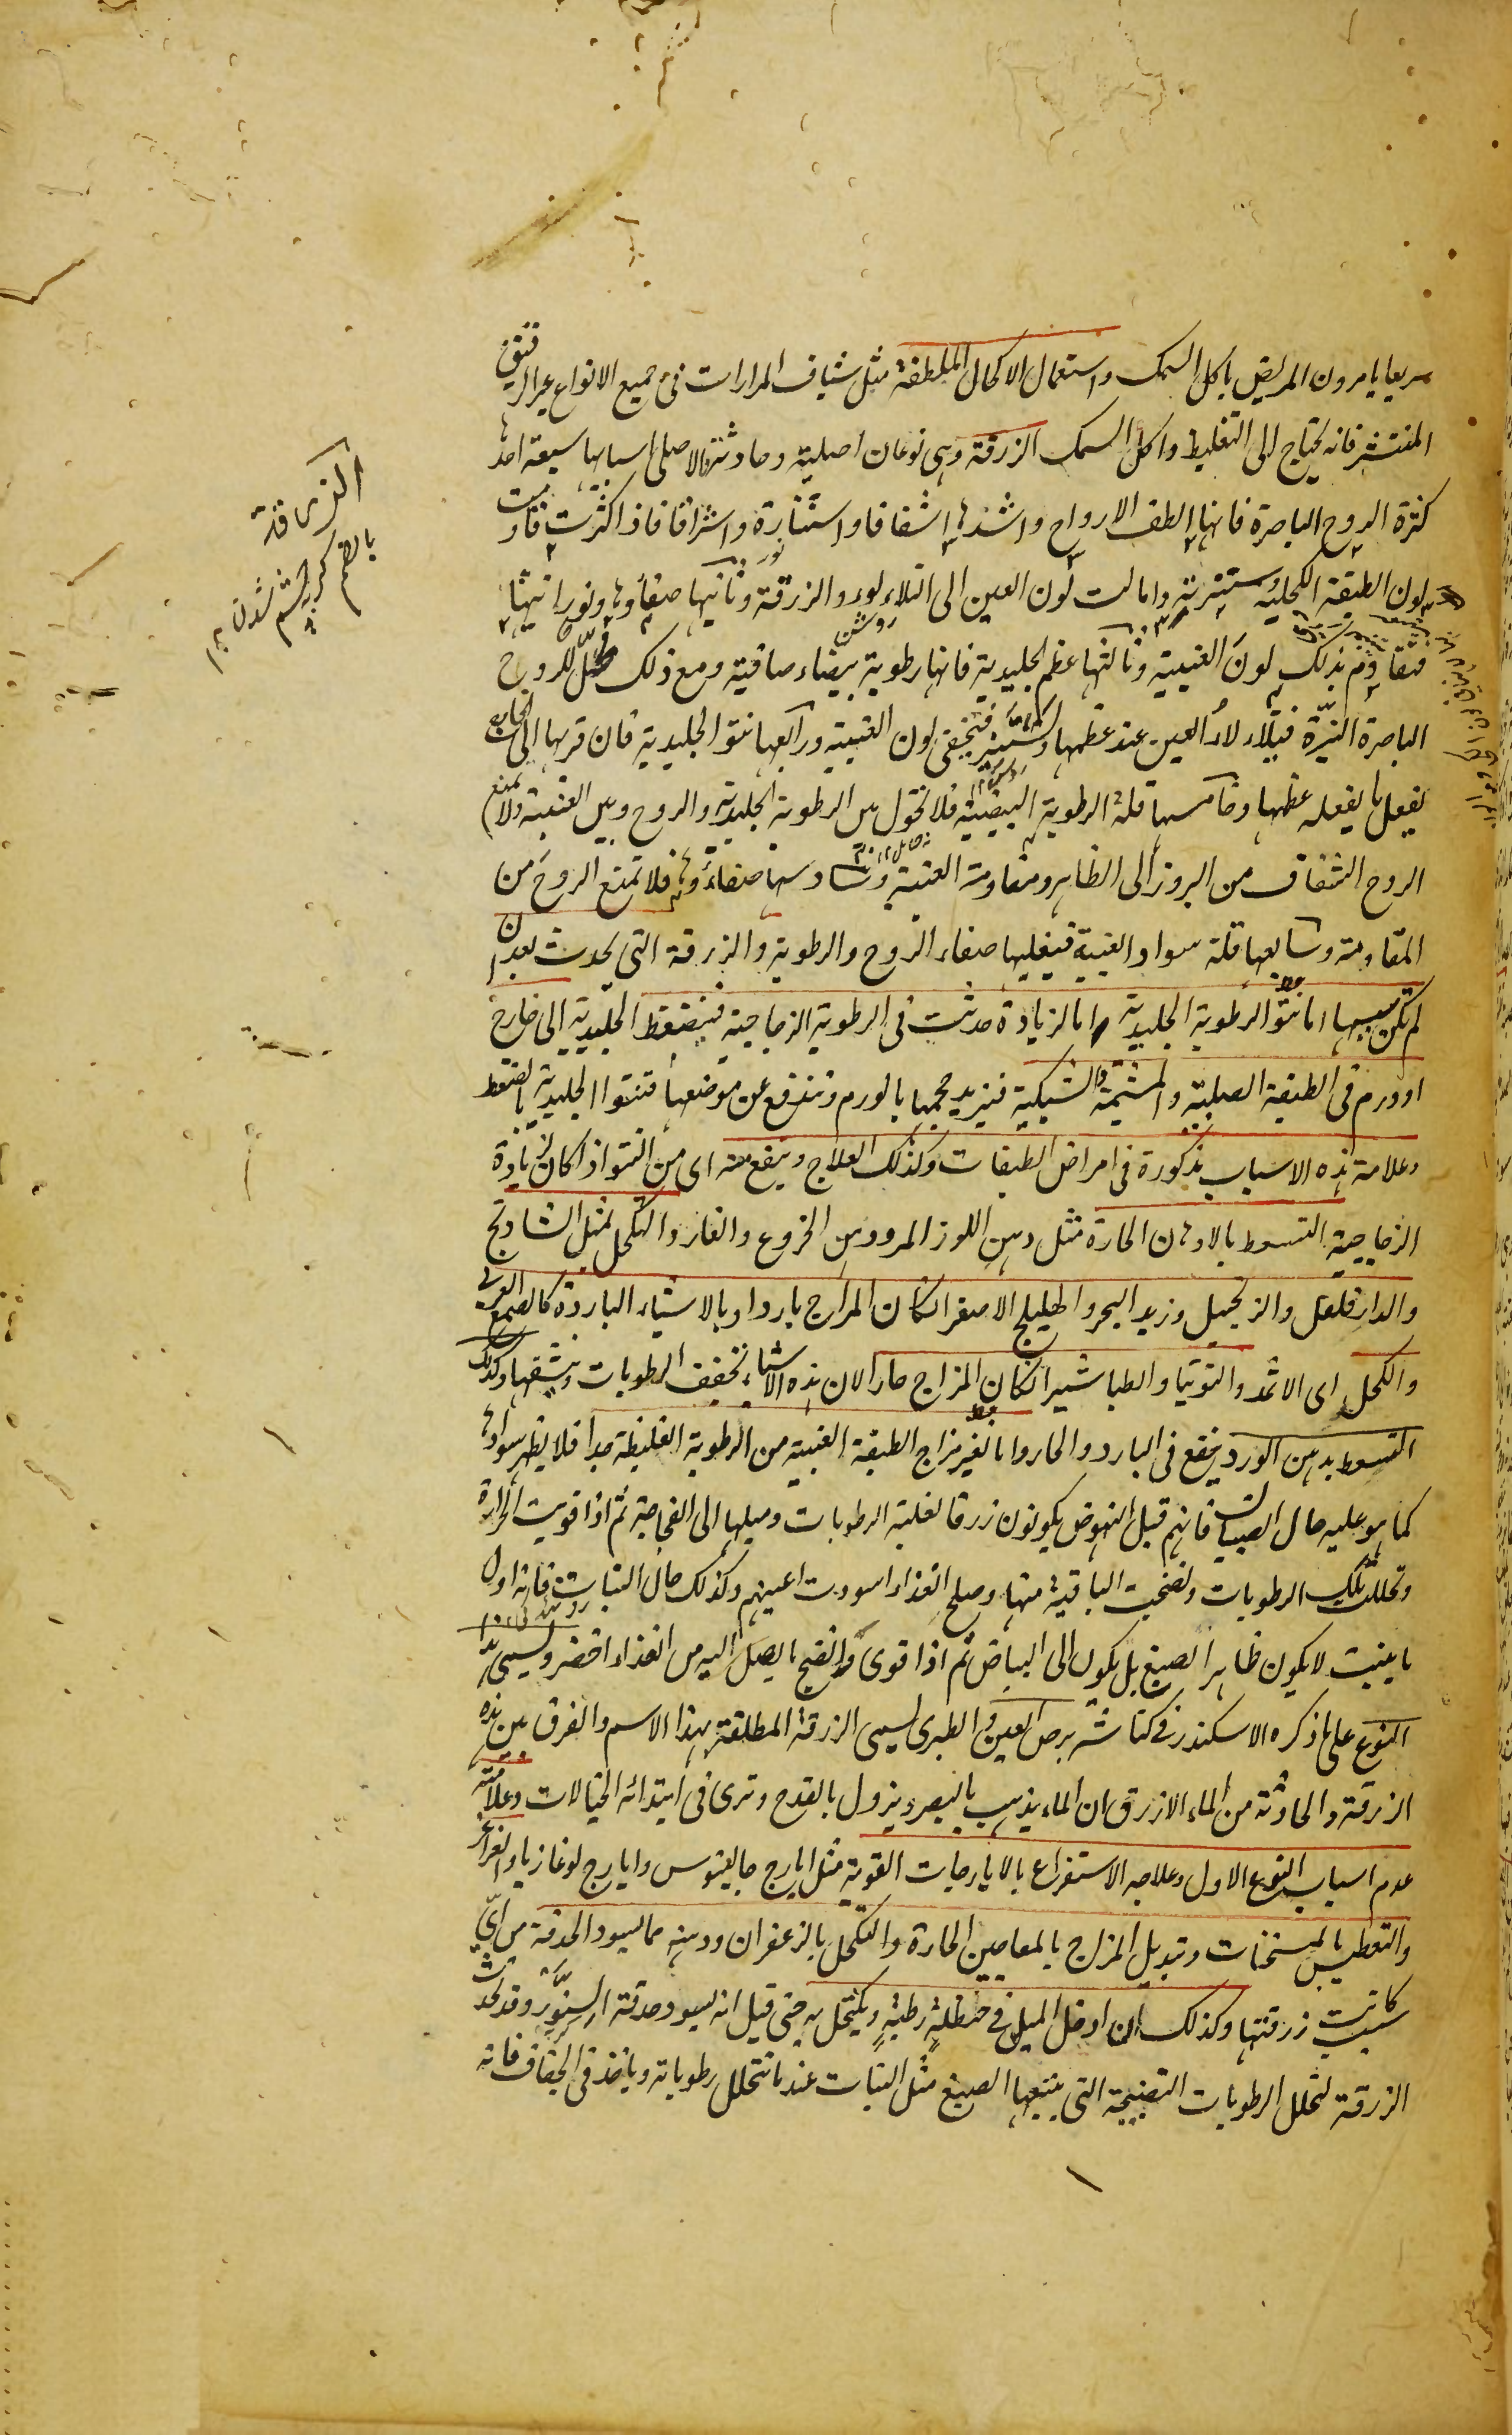 سريعا يامرون المريض باكل السمك واستعمال الاكحال الملطفة مثل شياف المرارات فى جميع الانواع غير الرقيق
المنتشر فانه يحتاج الى التغليظ واكل السمك الزرقة وهى نوعان اصلية وحادثة فالاصلى اسبابها سبعة احدها
كثرة الروح الباصرة فانها الطف الارواح واشدها اشفافا واستنارة واشراقا فاذا كثرت قاومت
لون الطبقة الكحلية ستنرته وامالت لون العين الى التلاءلوء والزرقة وثانيها صفاؤها ونورانيتها
فتقاوم بذلك لون العنبية وثالثها عظم الجليدية فانها رطوبة بيضاء صافية ومع ذلك محل للروح
الباصرة النيّرة فيتلاءلاء العين عند عظمها وتستنير فتخفى لون العنبية ورابعها نتو الجليدية فان قربها الى الخارج
يفعل ما يفعله عظمها وخامسها قلة الرطوبة البيضية فلا تحول بين الرطوبة الجليدية والروح وبين العنبية ولا تمنع
الروح الشفاف من البروز الى الظاهر ومقاومة العنبية وسادسها صفاؤها فلا تمنع الروح من
المقاومة وسابعها قلة سواد العنبية فيغلبها صفاء الروح والرطوبة والزرقة التى تحدث بعد ان
لم تكن سببها اما نتو الرطوبة الجليدية اما لزيادة حدثت فى الرطوبة الزجاجية فينضغط الجليدية الى خارج
او ورم فى الطبقة الصلبية والمشيمية والشبكية فيزيد حجمها بالورم وتندفع عن موضعها فتنتوا الجليدية بالضغط
وعلامة هذه الاسباب مذكورة فى امراض الطبقات وكذلك العلاج وينفع منه اى من النتو اذا كان لزيادة
الزجاجية التسعط بالادهان الحارة مثل دهن اللوز المر ودهن الخروع والغار والتكحل بمثل الشادنج
والدارفلفل والزنجبيل وزبد البحر والهليلج الاصفر ان كان المزاج باردا وبالاشياء الباردة كالصمغ العربى
والكحل اى الاثمد والتوتيا والطباشير ان كان المزاج حارا لان هذه الاشياء تخفف الرطوبات وتنشفها وكذلك
التسعط بدهن الورد ينفع فى البارد والحار واما تغير مزاج الطبقة العنبية من الرطوبة الغليظة جدا فلا يظهر سوادها
كما هو عليه حال الصبيان فانهم قبل النهوض يكونون زرقا لغلبة الرطوبات وميلها الى الفجاجة ثم اذا قويت الحرارة
وتحللت تلك الرطوبات ونضجت الباقية منها وصلح الغذاء اسودت اعينهم وكذلك حال النبات فانه اول
ما ينبت لا يكون ظاهر الصبغ بل يكون الى البياض ثم اذا قوى وانضج ما يصل اليه من الغذاء اخضر ويسمى هذا
النوع على ما ذكره الاسكندر فى كناشه برص العين والطبرى يسمى الزرقة المطلقة بهذا الاسم والفرق بين هذه
الزرقة والحادثة من الماء الازرق ان الماء يذهب بالبصر ويزول بالقدح وترى فى ابتدائه الخيالات وعلامته
عدم اسباب النوع الاول وعلاجه الاستفراغ بالايارجات القوية مثل ايارج جالينوس وايارج لوغاذيا والغراغر
والتعطيس بالمسخنات وتبديل المزاج بالمعاجين الحارة والتكحل بالزعفران ودهنه مما يسود الحدقة من اىّ
سبب كانت زرقتها وكذلك ان ادخل الميل فى حنظلةٍ رطبةٍ ويكتحل به حتى قيل انه يسود حدقة السنّور وقد تحدث
الزرقة لتحلل الرطوبات النضيجة التى يتبعها الصبغ مثل النبات عند ما تتحلل رطوباته وياخذ فى الجفاف فانه
الزرقة
بالضم كربه چشم شدن ١٢